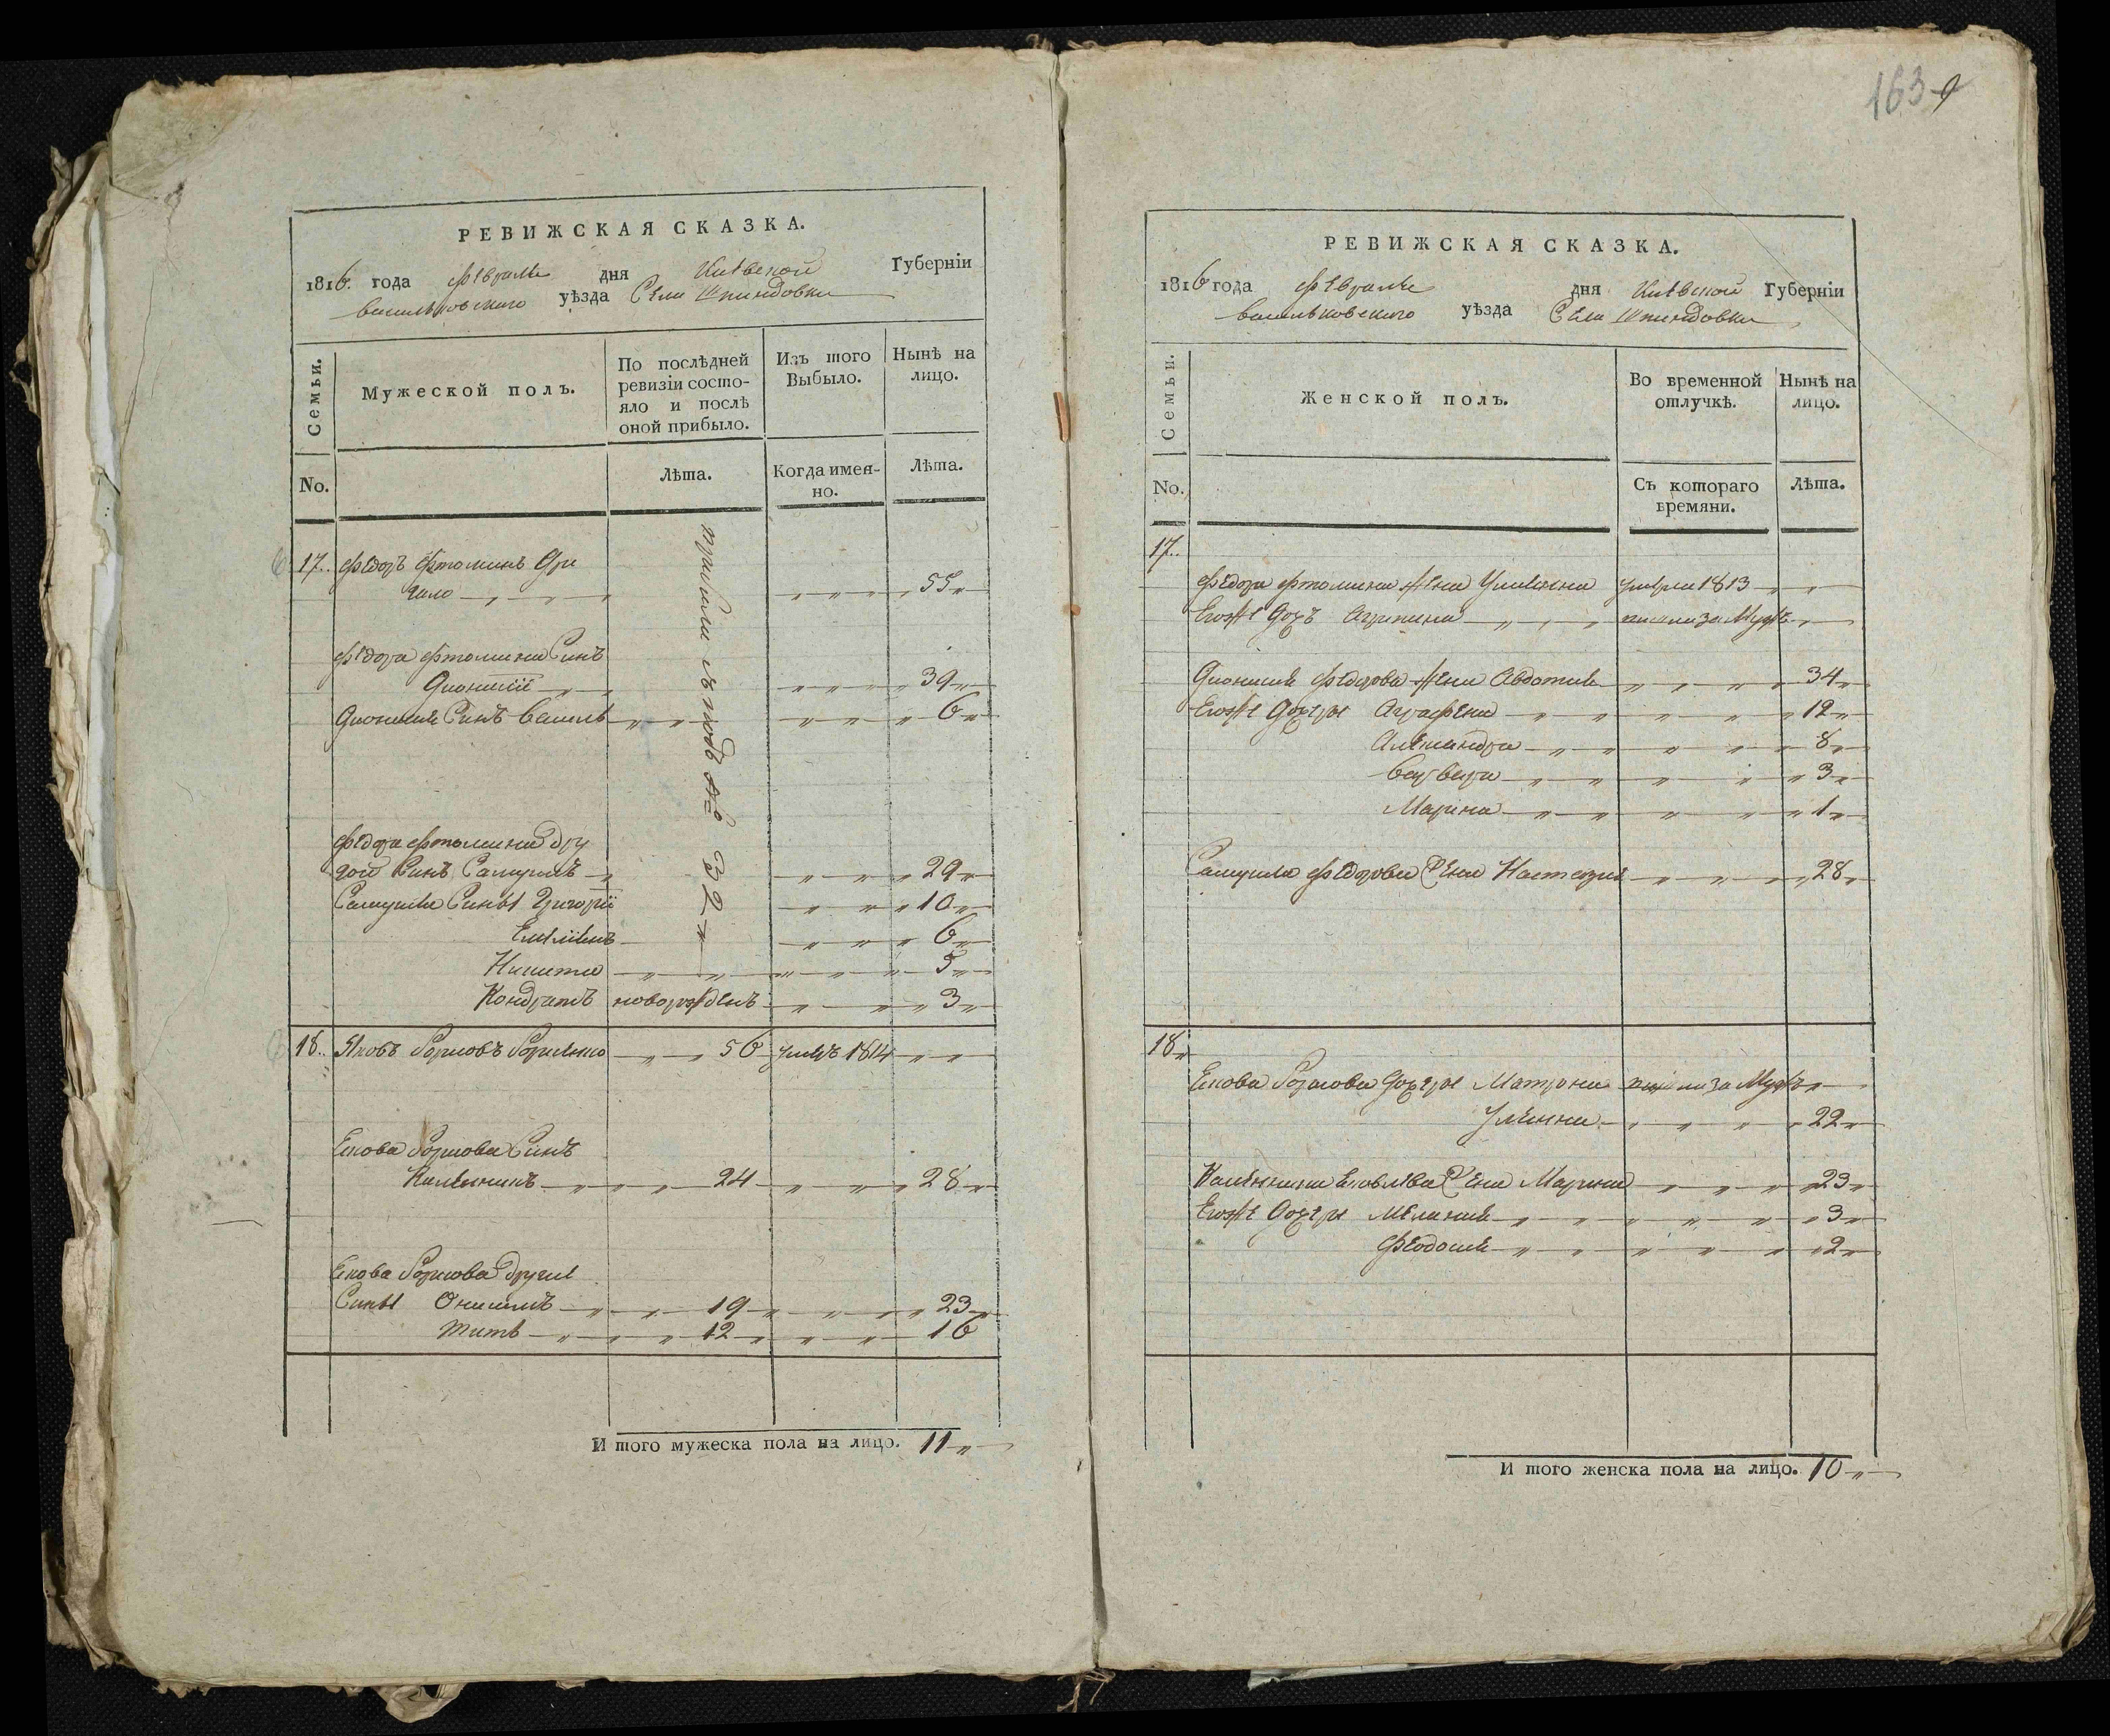 163
РЕВИЖСКАЯ СКАЗКА.
1816. года февраля дня Киевской Губерніи
васильковского уѣзда Села Шпендовки
Семьи.
Мужеской полъ.
По послѣдней ревизіи состояло и послѣ оной прибыло.
Изъ того Выбыло.
Нынѣ на лицо.
No.
Лѣта.
Когда именно.
Лѣта.
17. Федоръ Фтоминъ
55
Федора Фтомина Синъ
Дионисій 39
Дионисія Синъ Василь 6
Федора Фтомина дру
гой Синъ Самуилъ 29
Самуила Сины Григорій 10
Емелиянъ 6
Никита 5
Кондратъ новорожденъ 3
32
18. Яковъ 56 умеръ 1814
Екова Синъ
Калениикъ 24 28
Екова другие
Сины Онисимъ 19 23
Титъ 12 16
И того мужеска пола на лицо. 11
РЕВИЖСКАЯ СКАЗКА.
1816 года февраля дня Киевской Губерніи
васильковского уѣзда Села Шпендовки
Семьи.
Женской полъ.
Во временной отлучкѣ.
Нынѣ на лицо.
No.
Съ котораго времяни.
Лѣта.
17.
Федора Фтомина жена Улияна умерла 1813
Егоже Дочъ Агрипина пошла за Мужъ
Дионисия Федорова жена Авдотия 34
Егоже Дочери Аграфена 12
Александра 8
Варвара 3
Марина 1
Самуила Федорова Жена Настасия 28
18
Екова Дочери Матрона пошла за Мужъ
Улияна 22
Каленика Яковлева Жена Марина 23
Егоже Дочери Мелания 3
Феодосия 2
И того женска пола на лицо. 10